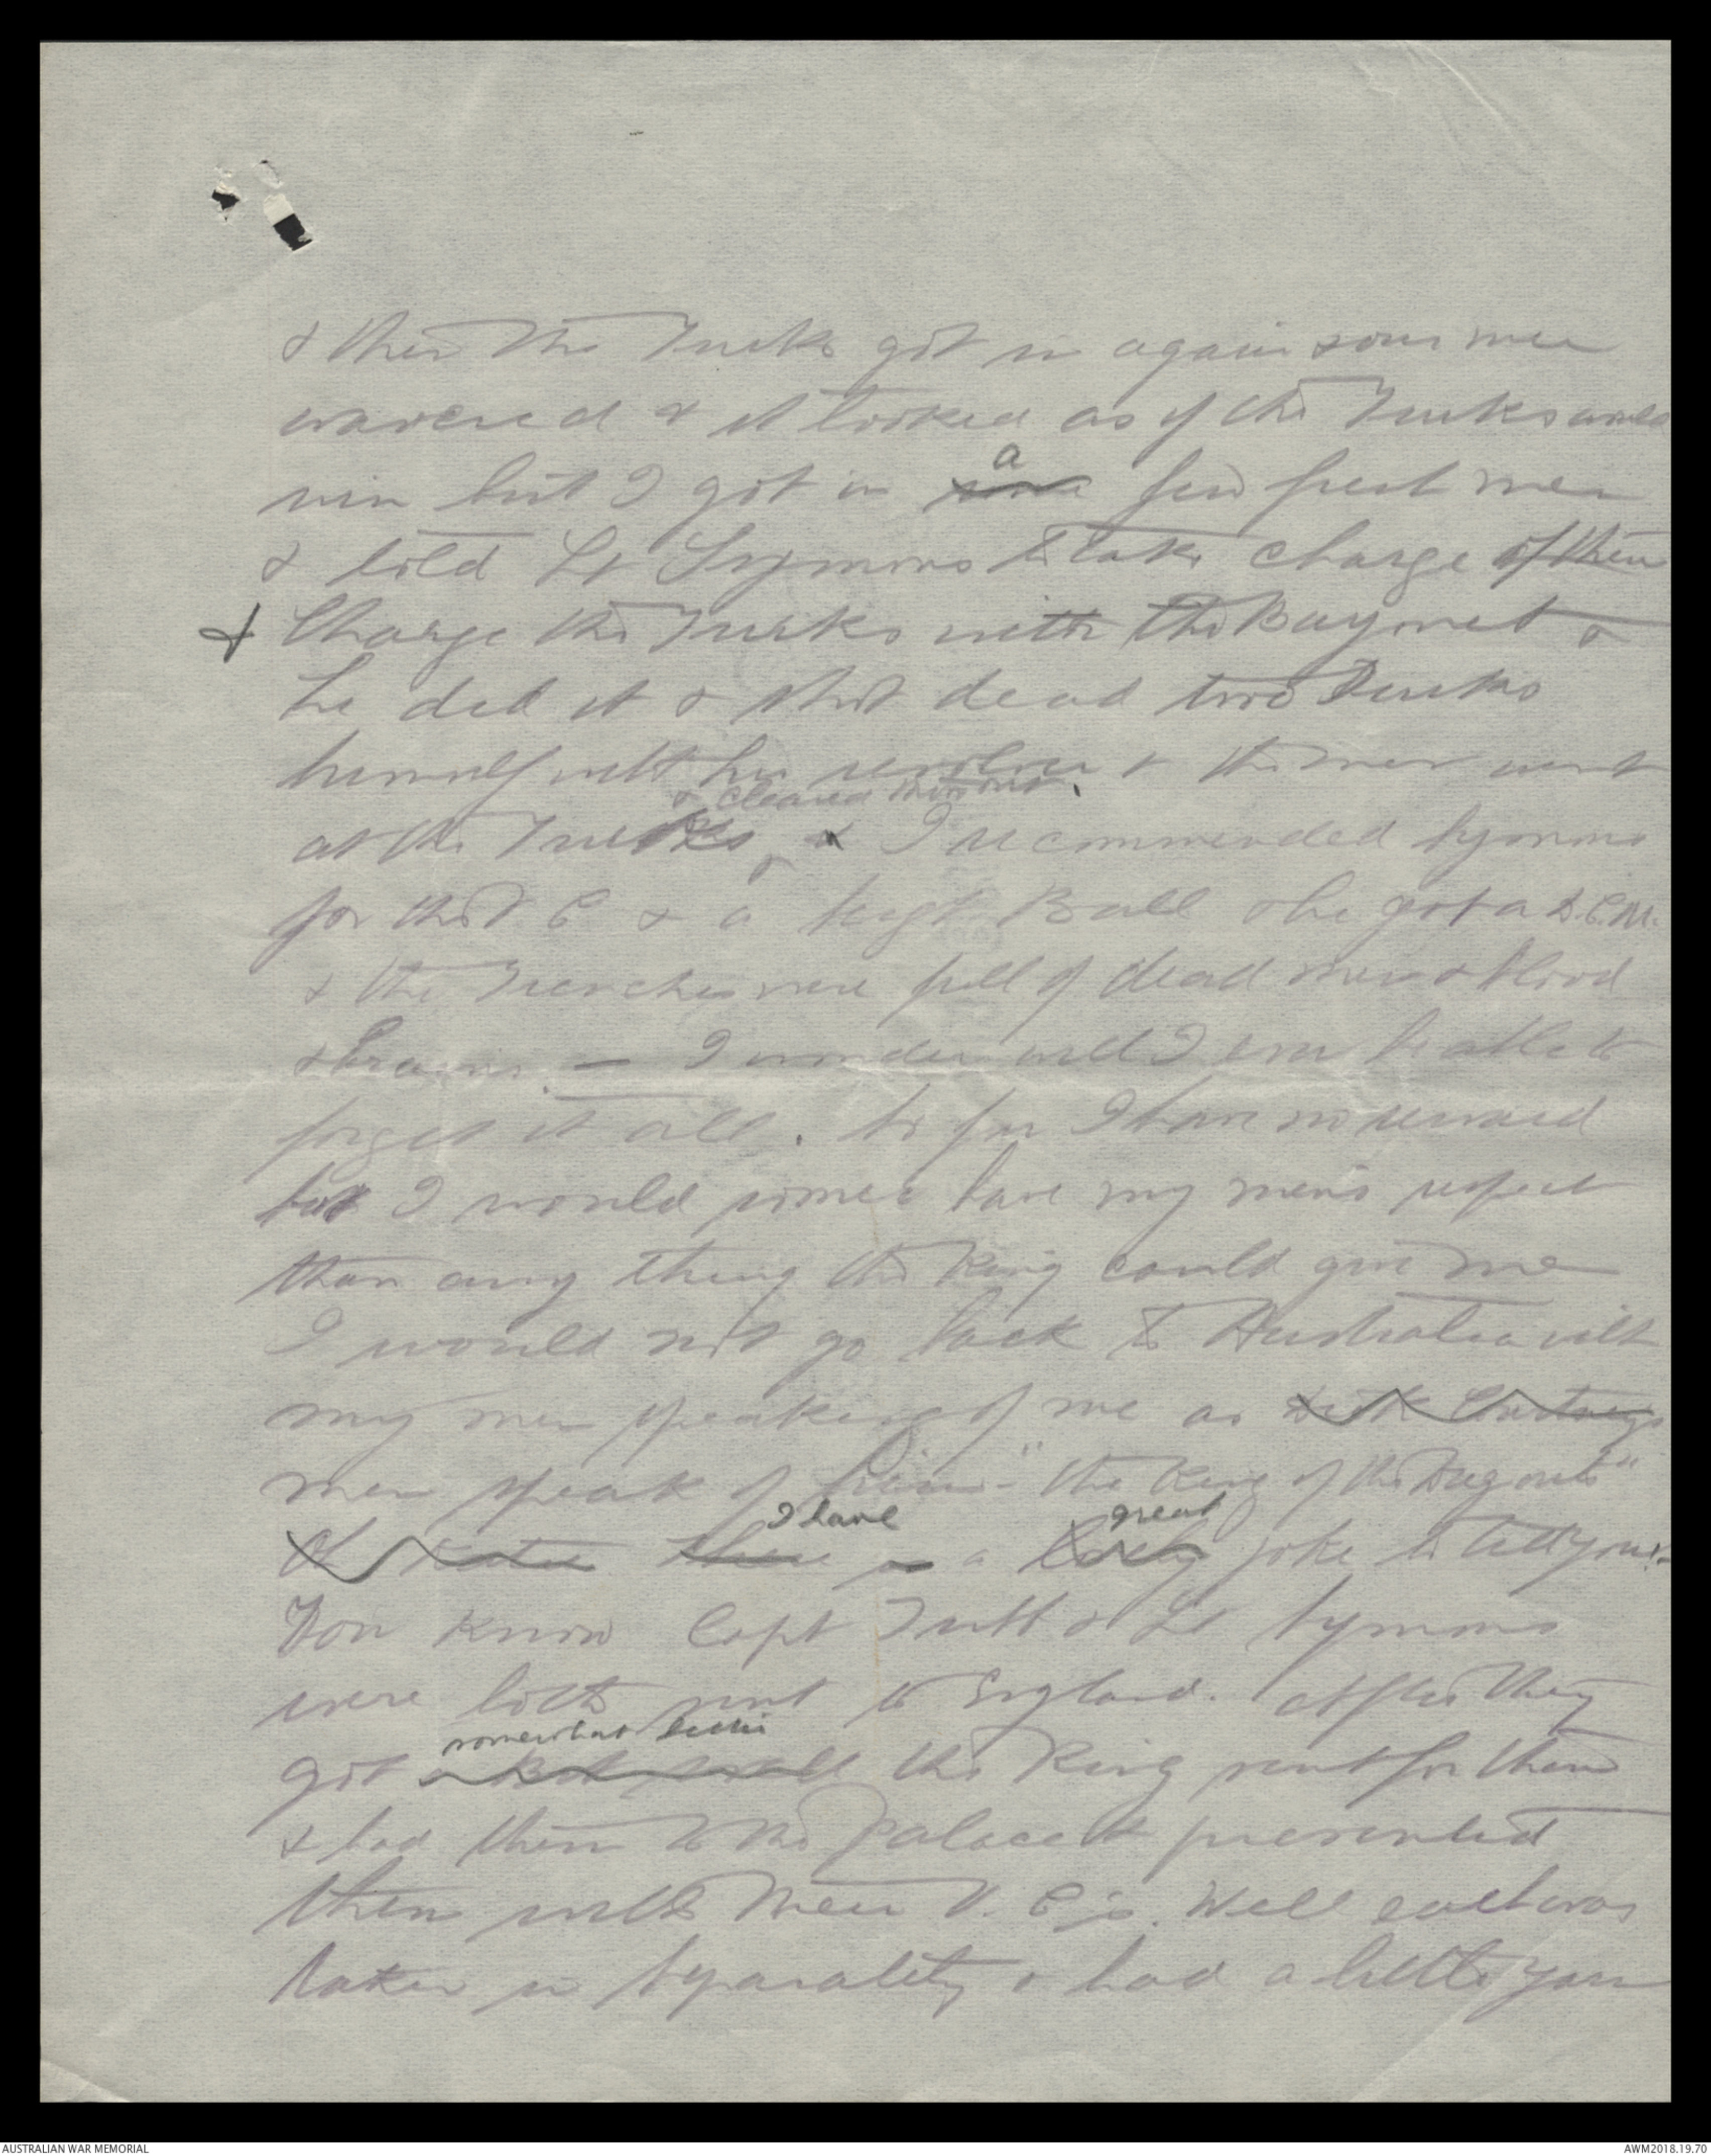 & then the Turks got in again & our men
wavered & it looked as if the Turks would
win but I got in some a few fresh men
& told Lt Symons to take charge of them
& Charge the Turks with the Bayonet &
he did it & shot dead two Turks
himself with his revolver & the men went
at the Turks & cleared them out. & I recommended Symons
for the V.C & a Cpl Ball & he got a D.C.M.
& the Trenches were full of dead men & blood
& brains. — I wonder will I ever be able to
forget it all. So far I have no reward
but I would sooner have my men's respect
than any thing the King could give me
I would not go back to Australia with
my men speaking of me as
men speak of "the King of the Dug outs"
there is I have a great joke to tell you:-
You know Capt Tubb & Lt Symons
were both sent to England. After they
got somewhat better the King sent for them
& had them to the Palace & presented
them with their V.C's. Well each was
taken in separately & had a little yarn
AUSTRALIAN WAR MEMORIAL
AWM2018.19.70